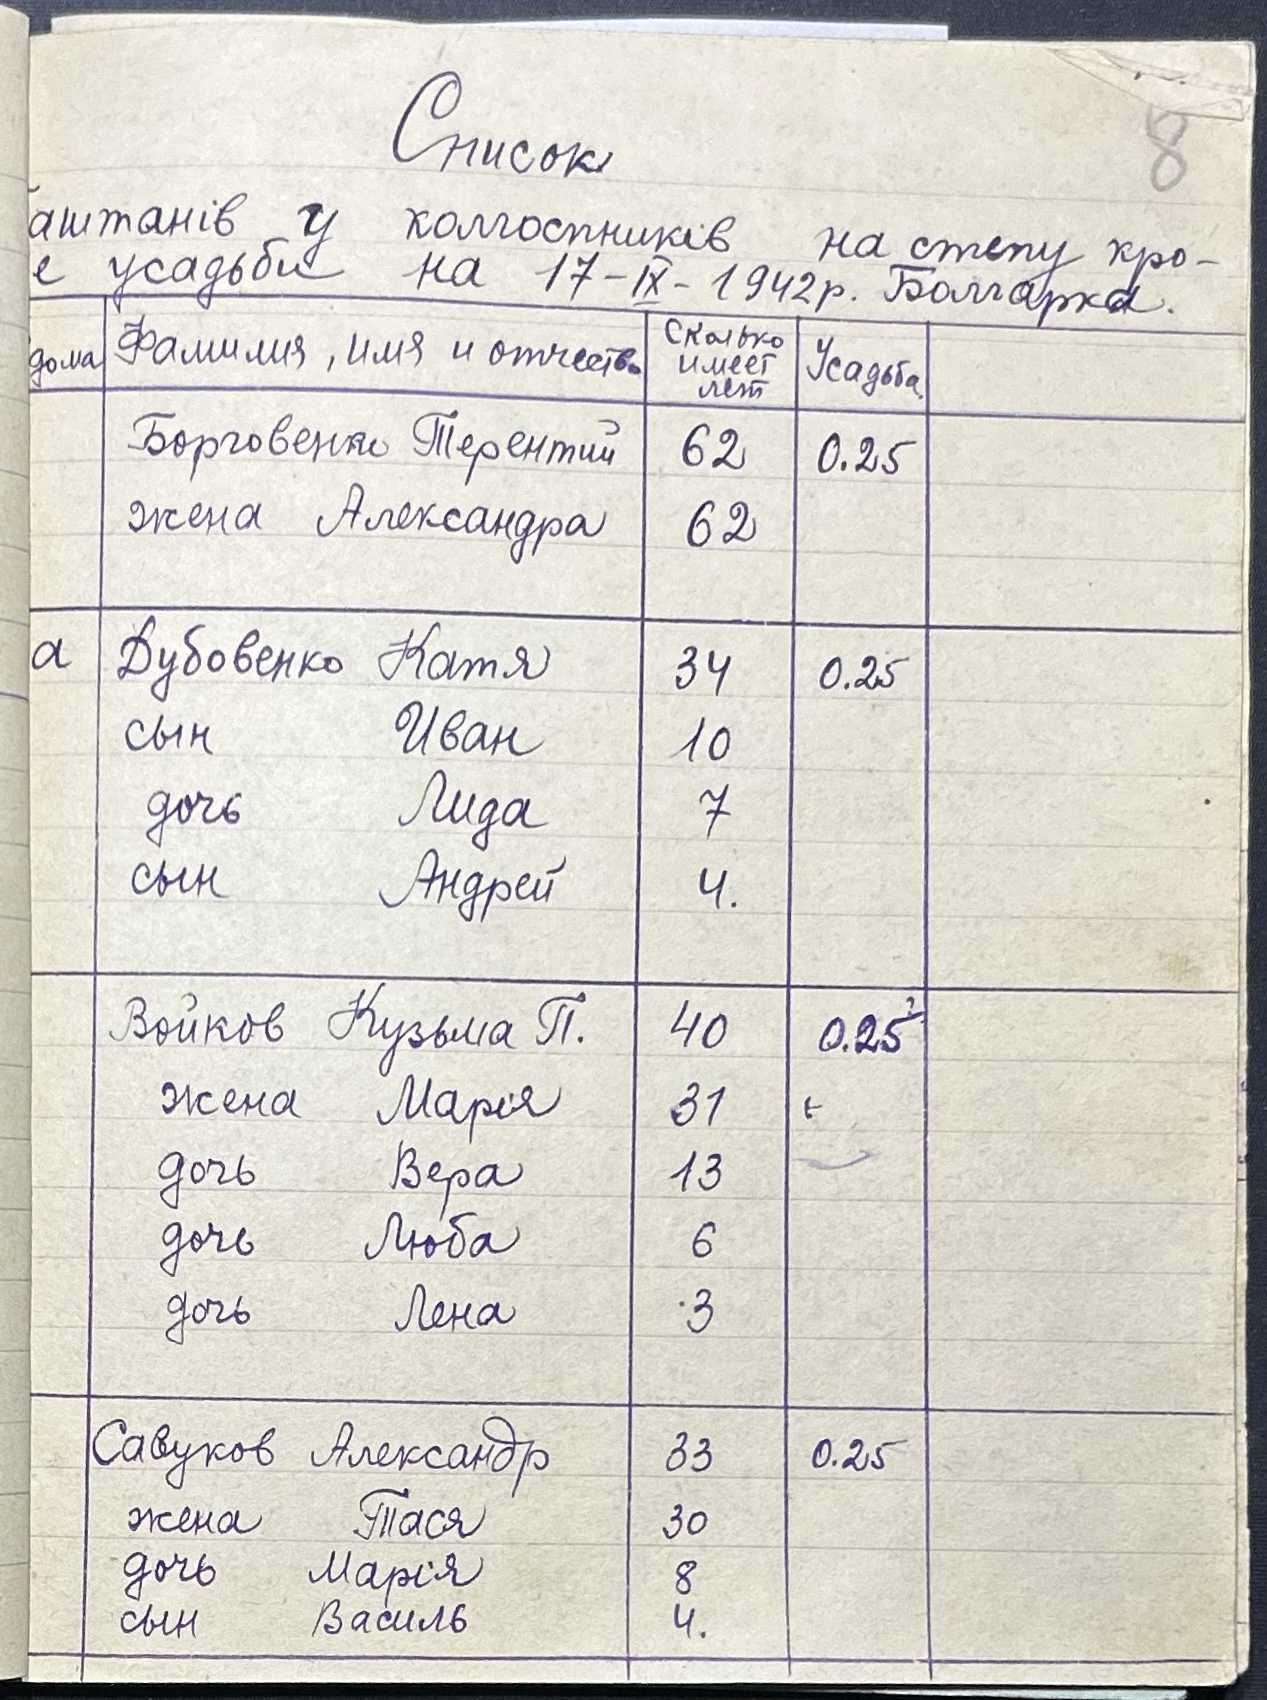 8
Список
баштанів у колгоспників на степу кро-
е усадьби на 17-IX-1942р. Болгарка.
дома Фамилия, имя и отчество Сколько имеет лет Усадьба
Борговенко Терентий 62 0.25
жена Александра 62
а Дубовенко Катя 34 0.25
сын Иван 10
дочь Лида 7
сын Андрей 4.
Войков Кузьма П. 40 0.25
жена Марія 31
дочь Вера 13
дочь Люба 6
дочь Лена 3
Савуков Александр 33 0.25
жена Тася 30
дочь Марія 8
сын Василь 4.